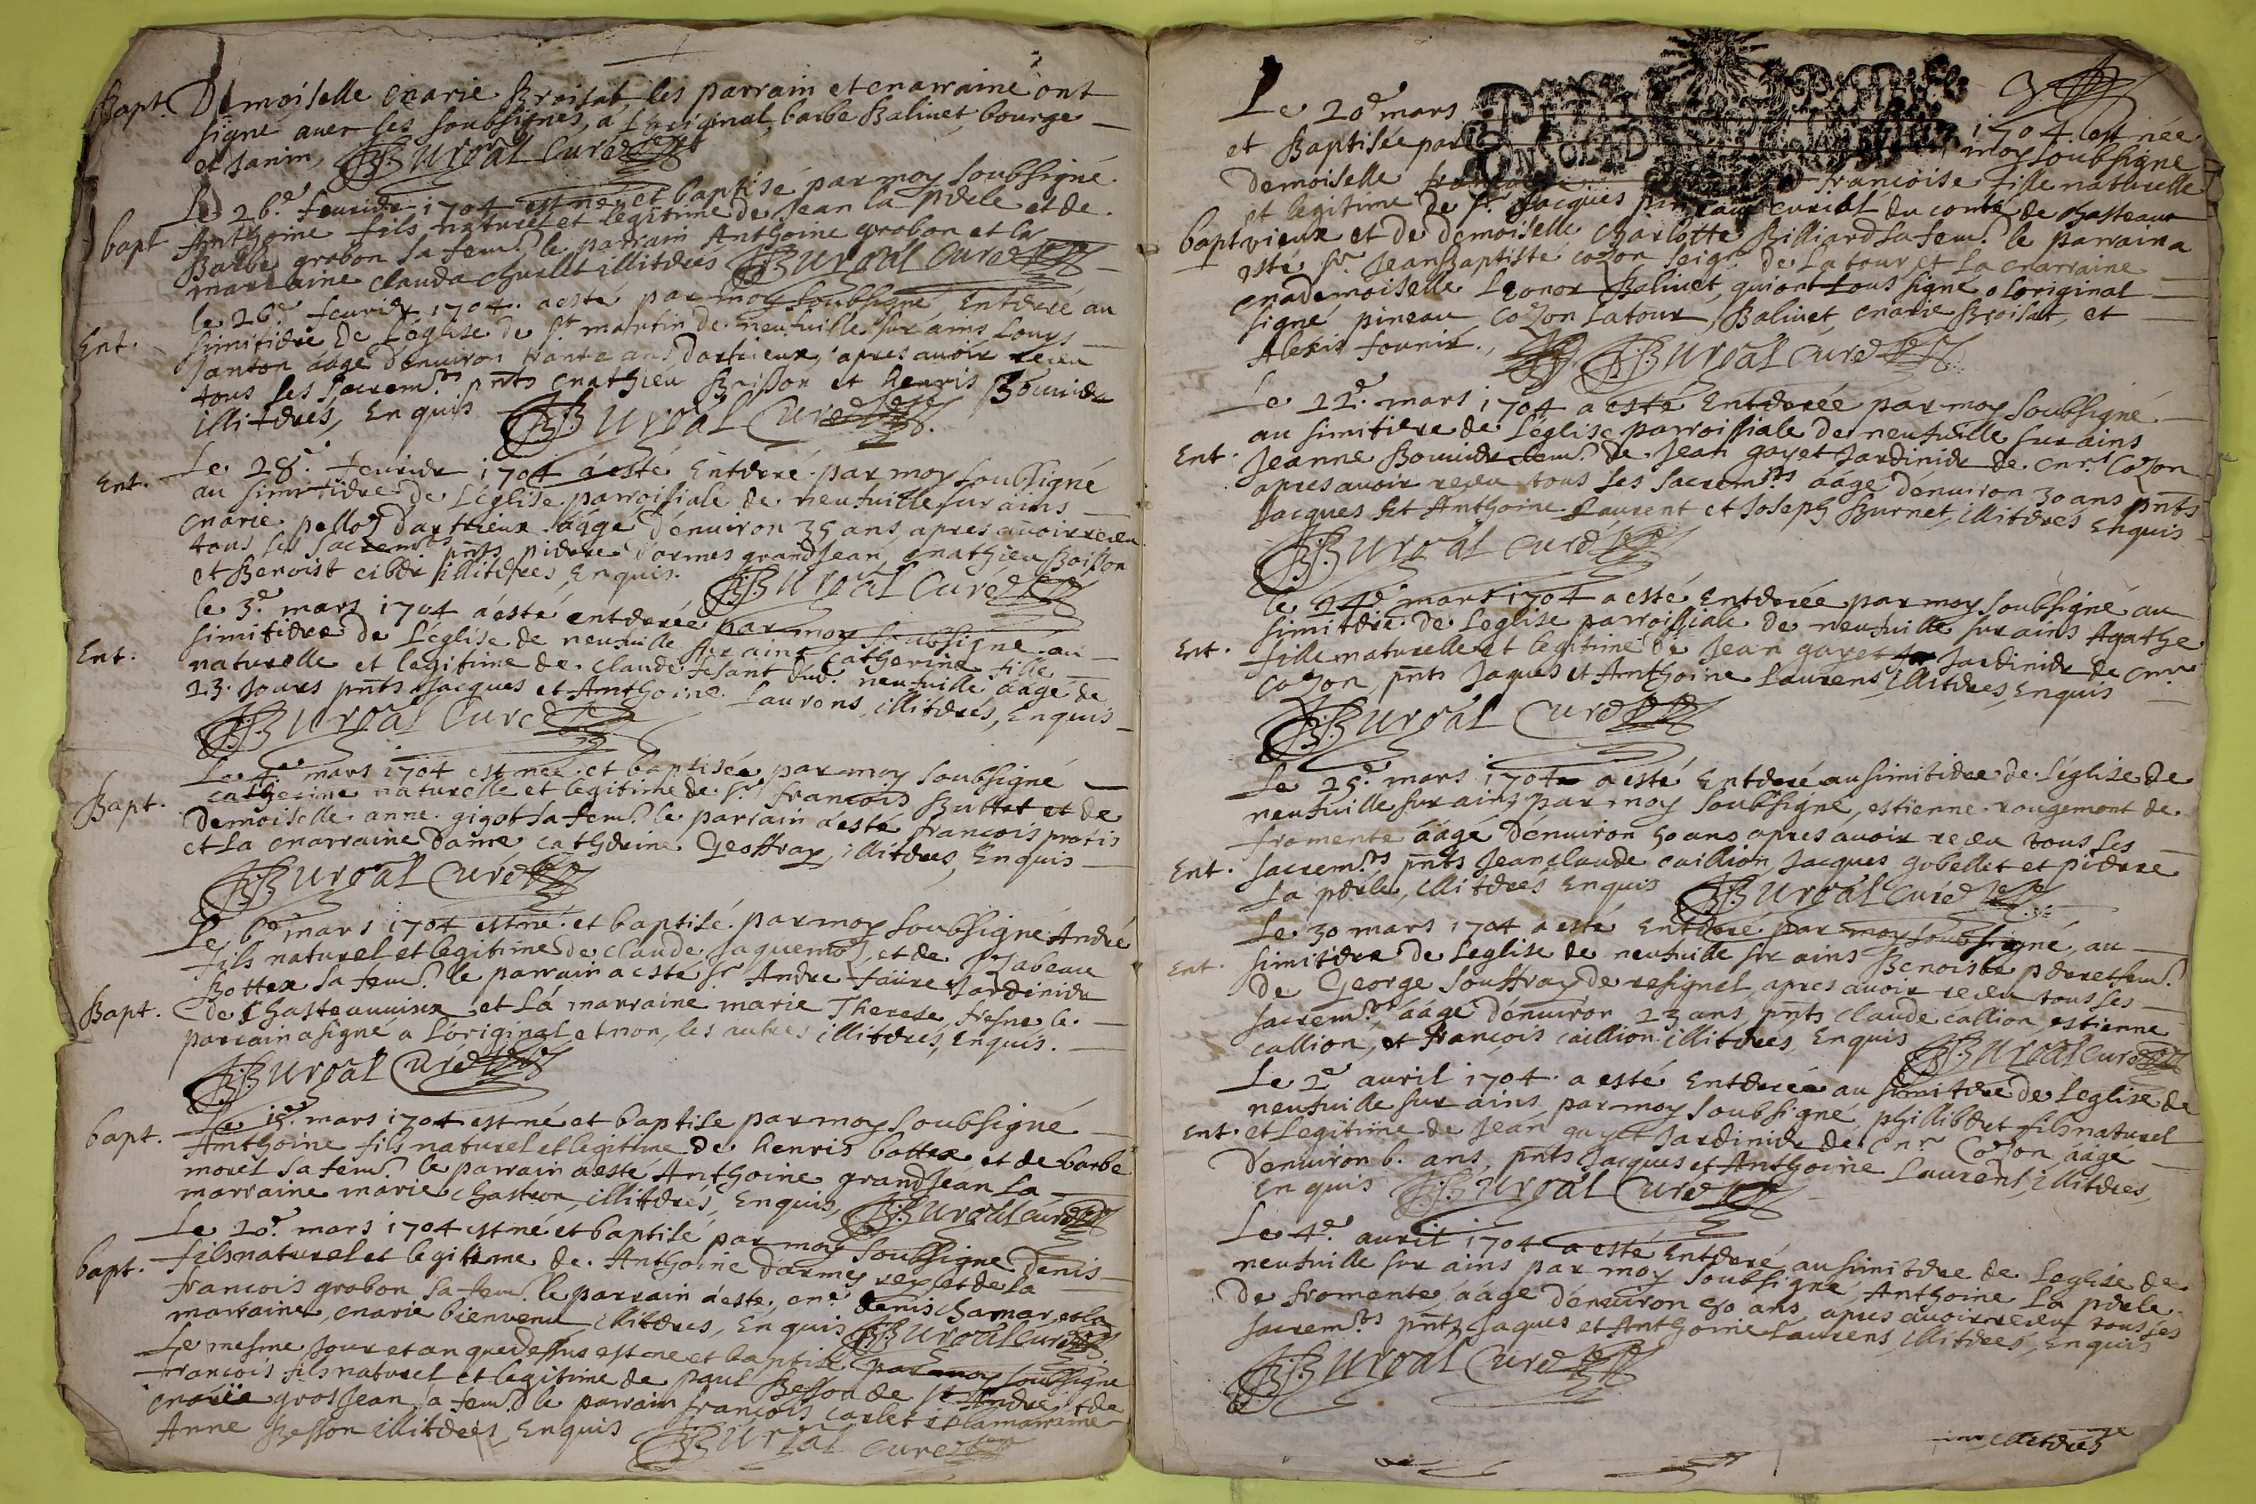 Bapt. Demoiselle marie Broisat, les parrain et marraine ont
signe avec les soubsignes, a Loriginal, barbe Balivet, bourge
et Janin, Burgal Curé
Le 26e feurier 1704 est né et baptisé par moy soubsigné
bapt Anthoine fils naturel et legitime de Jean la perle et de
Barbe grobon sa fem.e le parrain Anthoine grobon et la
marraine clauda illiterés Burgal Curé
le 26e feurier 1704. a esté par moy soubsigné, Enterré au
Ent. simitiere de L'eglise de st martin de neufuille sur ains Louys
Janton áagé d'enuiron trante ans dartrieux, apres auoir receu
tous les sacrem.ts pnts mathieu Boisson et henris Bouuier
illiterés, Enquis Burgal Curé
Le 28e feurier 1704 a esté Enterré par moy soubsigné
Ent. au simitiere de L'eglise parroissiale de neufuille sur ains
marie pelloz dartrieux áagé d'enuiron 35 ans, apres auoir receu
tous les sacrem.ts pnts pierre darmes grandJean, mathieu Boisson
et Benoist ciber illiterés, Enquis. Burgal Curé
le 3e mars 1704 a esté enterrée par moy soubsigné au
Ent. simitiere de L'eglise de neufuille sur ains Catherine fille
naturelle et legitime de claude tesant dud. neufuille áagé de
23. Jours pnts Jacques et Anthoine Laurens, illiterés, Enquis
Burgal Curé
Le 4e mars 1704 est née et baptisée par moy soubsigné
Bapt. catherine naturelle et legitime de sr francois Buttet et de
Demoiselle anne gigot sa fem.e le parrain a esté francois protis
et La marraine Dame catherine Geoffray, illiterés, Enquis
Burgal Curé
Le 6e mars 1704 est né et baptisé par moy soubsigné André
fils naturel et legitime de claude Jaquemoz, et de Izabeau
Bottex sa fem.e le parrain a esté sr Andre faure Jardinier
Bapt. de Chasteauuieux et La marraine marie Therese fresne le
parrain a signé a L'original et non, les autres illiterés, Enquis.
Burgal Curé
Le 15e mars 1704 est né et baptisé par moy soubsigné
bapt. Anthoine fils naturel et legitime de henris bottex et de barbe
morel sa fem.e le parrain a esté Anthoine grandJean La
marraine marie chastron, illiterés, Enquis, Burgal Curé
Le 20e mars 1704 est né et baptisé par moy soubsigne Denis
bapt. fils naturel et legitime de Anthoine darmes rey et de La
francois grobon sa fem.e le parrain a esté, me denis chamar, et la
marraine, marie bienvenu illiterés, Enquis Burgal Curé
Le mesme Jour et an que dessus est né et baptisé par moy soubsigne
francois fils naturel et legitime de paul Besson de st André et de
marie grosJean sa fem.e le parrain francois carlet et la marraine
Anne Besson illiterés, Enquis Burgal Curé
Le 20e mars 1704 est née
et Baptisée par moy soubsigné
Demoiselle francoise fille naturelle
et legitime de sr Jacques pineau curial du conté de chasteau
bapt vieux et de demoiselle charlotte Billiard sa fem.e le parrain a
esté sr Jean Baptiste cozon seigr de La tour, et La marraine
mademoiselle Leonor Balivet, qui ont tous signe a Loriginal
signé pineau, Cozon Latour, Balivet, marie Broisat, et
Alexis fournir. Burgal Curé
Le 22e mars 1704 a esté Enterrée par moy soubsigné
au simitiere de L'eglise parroissiale de neufuille sur ains
Ent. Jeanne Bouuier fem.e de Jean gayet Jardinier de mr Cozon
apres auoir receu tous les sacrem.ts áagé d'enuiron 30 ans pnts
Jacques et Anthoine Laurent et Joseph Burnet, illiterés Enquis
Burgal Curé
le 24e mars 1704 a esté Enterrée par moy soubsigné au
simitiere de L'eglise parroissiale de neufuille sur ains Agathe
Ent. fille naturelle et legitime de Jean gayet Jardinier de mr
Cozon, pnts Jaques et Anthoine Laurens illiterés, Enquis
Burgal Curé
Le 25e mars 1704 a esté Enterré au simitiere de L'eglise de
neufuille sur ains par moy soubsigne, estienne rougemont de
fromente áagé d'enuiron 50 ans apres auoir receu tous les
Ent. sacrem.ts pnts Jean claude caillion, Jacques gobellet et pierre
La perle, illiterés Enquis Burgal Curé
Le 30 mars 1704 a esté Enterré par moy soubsigné, au
Ent. simitiere de L'eglise de neufuille sur ains Benoiste peret fem.e
de George souffray de resignel, apres auoir receu tous les
sacrem.ts áagé d'enuiron 23 ans pnts claude callion, estienne
callion, et francois caillion illiterés Enquis Burgal Curé
Le 2e auril 1704. a esté Enterrée au simitiere de L'eglise de
neufuille sur ains par moy soubsigné, phillibert fils naturel
Ent. et Legitime de Jean gayet Jardinier de mr Cozon áagé
d'enuiron 6. ans, pnts Jacques et Anthoine Laurens, illiterés,
Enquis Burgal Curé
Le 4e auril 1704 a esté Enterré au simitiere de L'eglise de
neufuille sur ains par moy soubsigné, Anthoine La perle
De fromente áagé d'enuiron 50 ans apres auoir receu tous les
sacrem.ts pnts Jaques et Anthoine Laurens illiterés, Enquis
Burgal Curé
illiterés